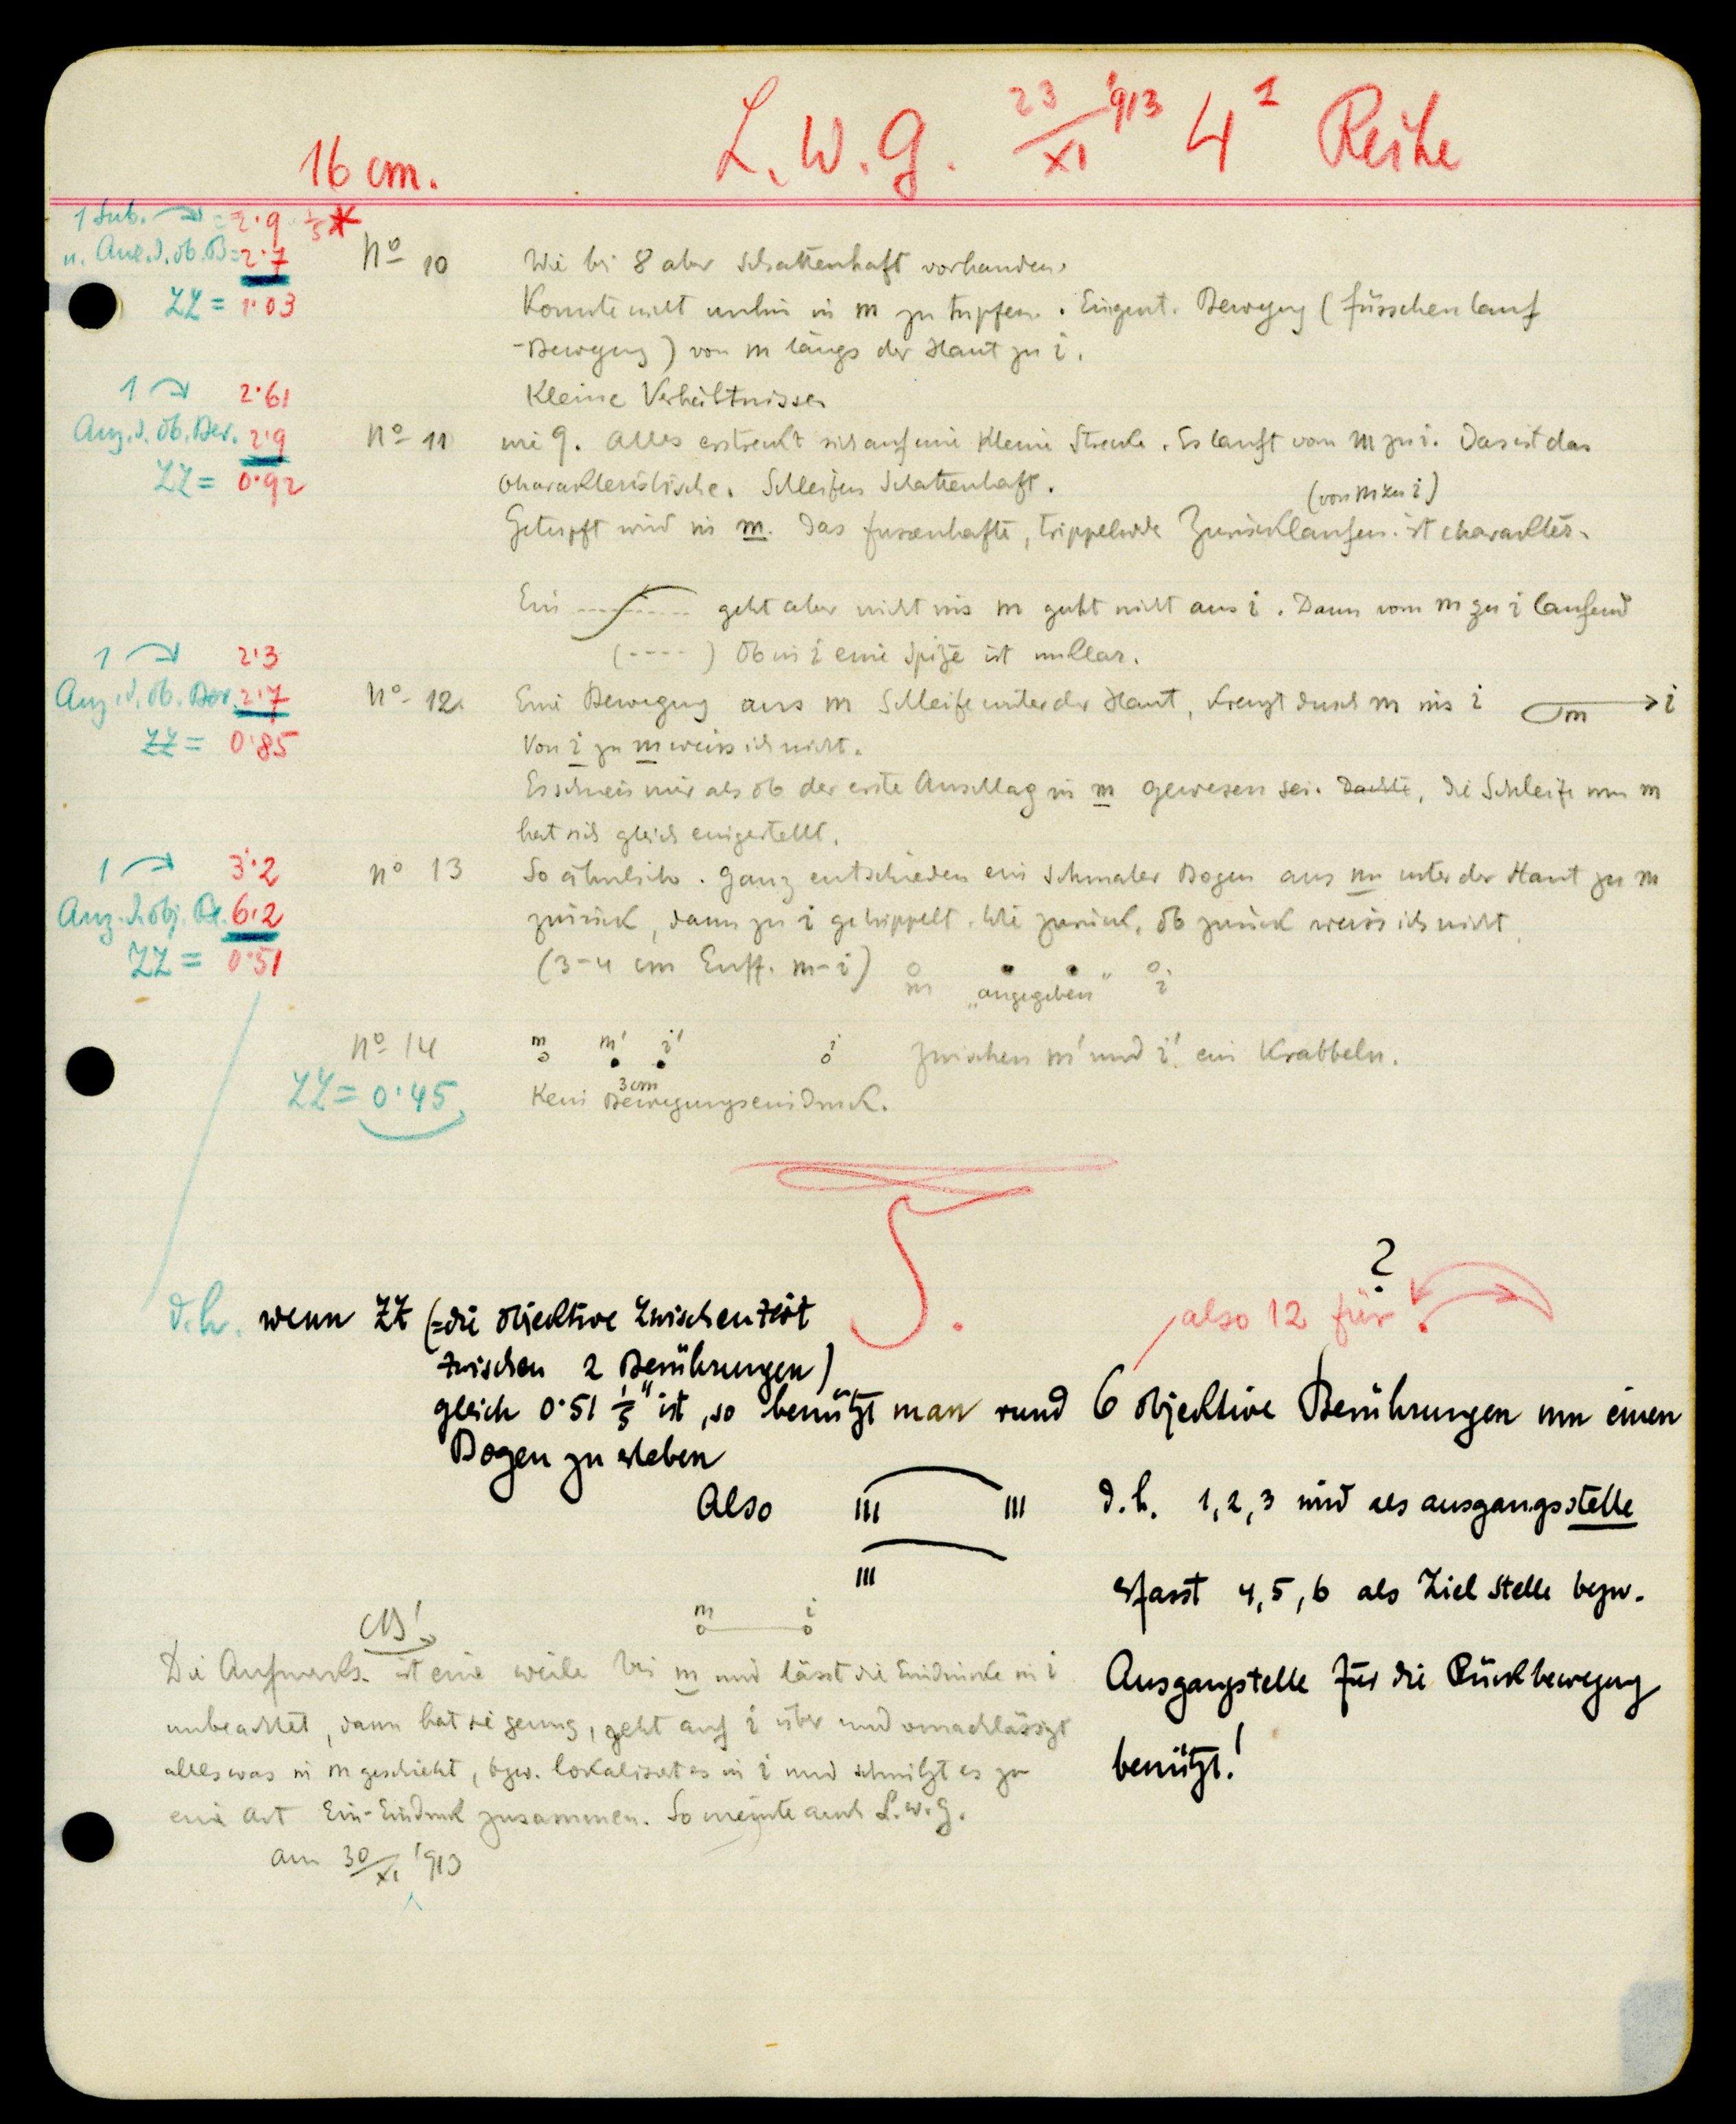 16 cm.
L. W. G. 23/XI '913 4¹ Reihe
1 Sub. = 2·9 1/5 *
u. Anz. d. ob. B = 2·7
ZZ = 1·03
No 10 Wie bei 8 aber schattenhaft vorhanden.
Konnte nicht umhin in m zu tupfen. Eigent. Bewegung (füsschenlauf
-Bewegung) von m längs der Haut zu i.
Kleine Verhältnisse
1 2·61
Anz. d. ob. Ber. 2·9
ZZ = 0·92
No 11 wie 9. Alles erstreckt sich auf eine kleine Strecke. Es lauft von m zu i. Das ist das
charakteristische. Schleifen schattenhaft.
(von m zu i)
Getupft wird in m. Das fussenhafte, trippelnde Zurücklaufen ist charakter.
Ein geht aber nicht ins m geht nicht aus i. Dann vom m zu i laufend
(----) Ob in i eine Spitze ist unklar.
1 2·3
Anz. d. ob. Ber. 2·7
ZZ = 0·85
No 12. Eine Bewegung aus m Schleife unter der Haut, kreuzt durch m ins i m i
Von i zu m weiss ich nicht.
Es schien mir als ob der erste Anschlag in m gewesen sei. Dachte, die Schleife um m
hat sich gleich eingestellt.
1 3·2
Anz. d. obj. Be. 6·2
ZZ = 0·51
No 13 So ähnlich. Ganz entschieden ein schmaler Bogen aus m unter der Haut zu m
zurück, dann zu i getrippelt. Wie zurück, ob zurück weiss ich nicht.
(3-4 cm Entf. m-i) m „angegeben" i
No 14 m m' i' i zwischen m' und i' ein Krabbeln.
3 cm
ZZ = 0·45 Kein Bewegungseindruck.
5.
?
also 12 für
d.h. wenn ZZ (=die objektive Zwischenzeit
zwischen 2 Berührungen)
gleich 0·51 1/5" ist, so benützt man rund 6 objektive Berührungen um einen
Bogen zu erleben
Also III III d.h. 1, 2, 3 wird als ausgangsstelle
III
erfasst 4, 5, 6 als Ziel stelle bezw.
Ausgangstelle für die Rückbewegung
benützt!
m i
Die Aufmerks. ist eine weile bei m und lässt die Eindrücke in i
unbeachtet, dann hat sie genug, geht auf i über und vernachlässigt
alles was in m geschieht, bzw. lokalisiert es in i und schmilzt es zu
eine Art Ein-Eindruck zusammen. So meinte auch L.W.G.
am 30/XI '913